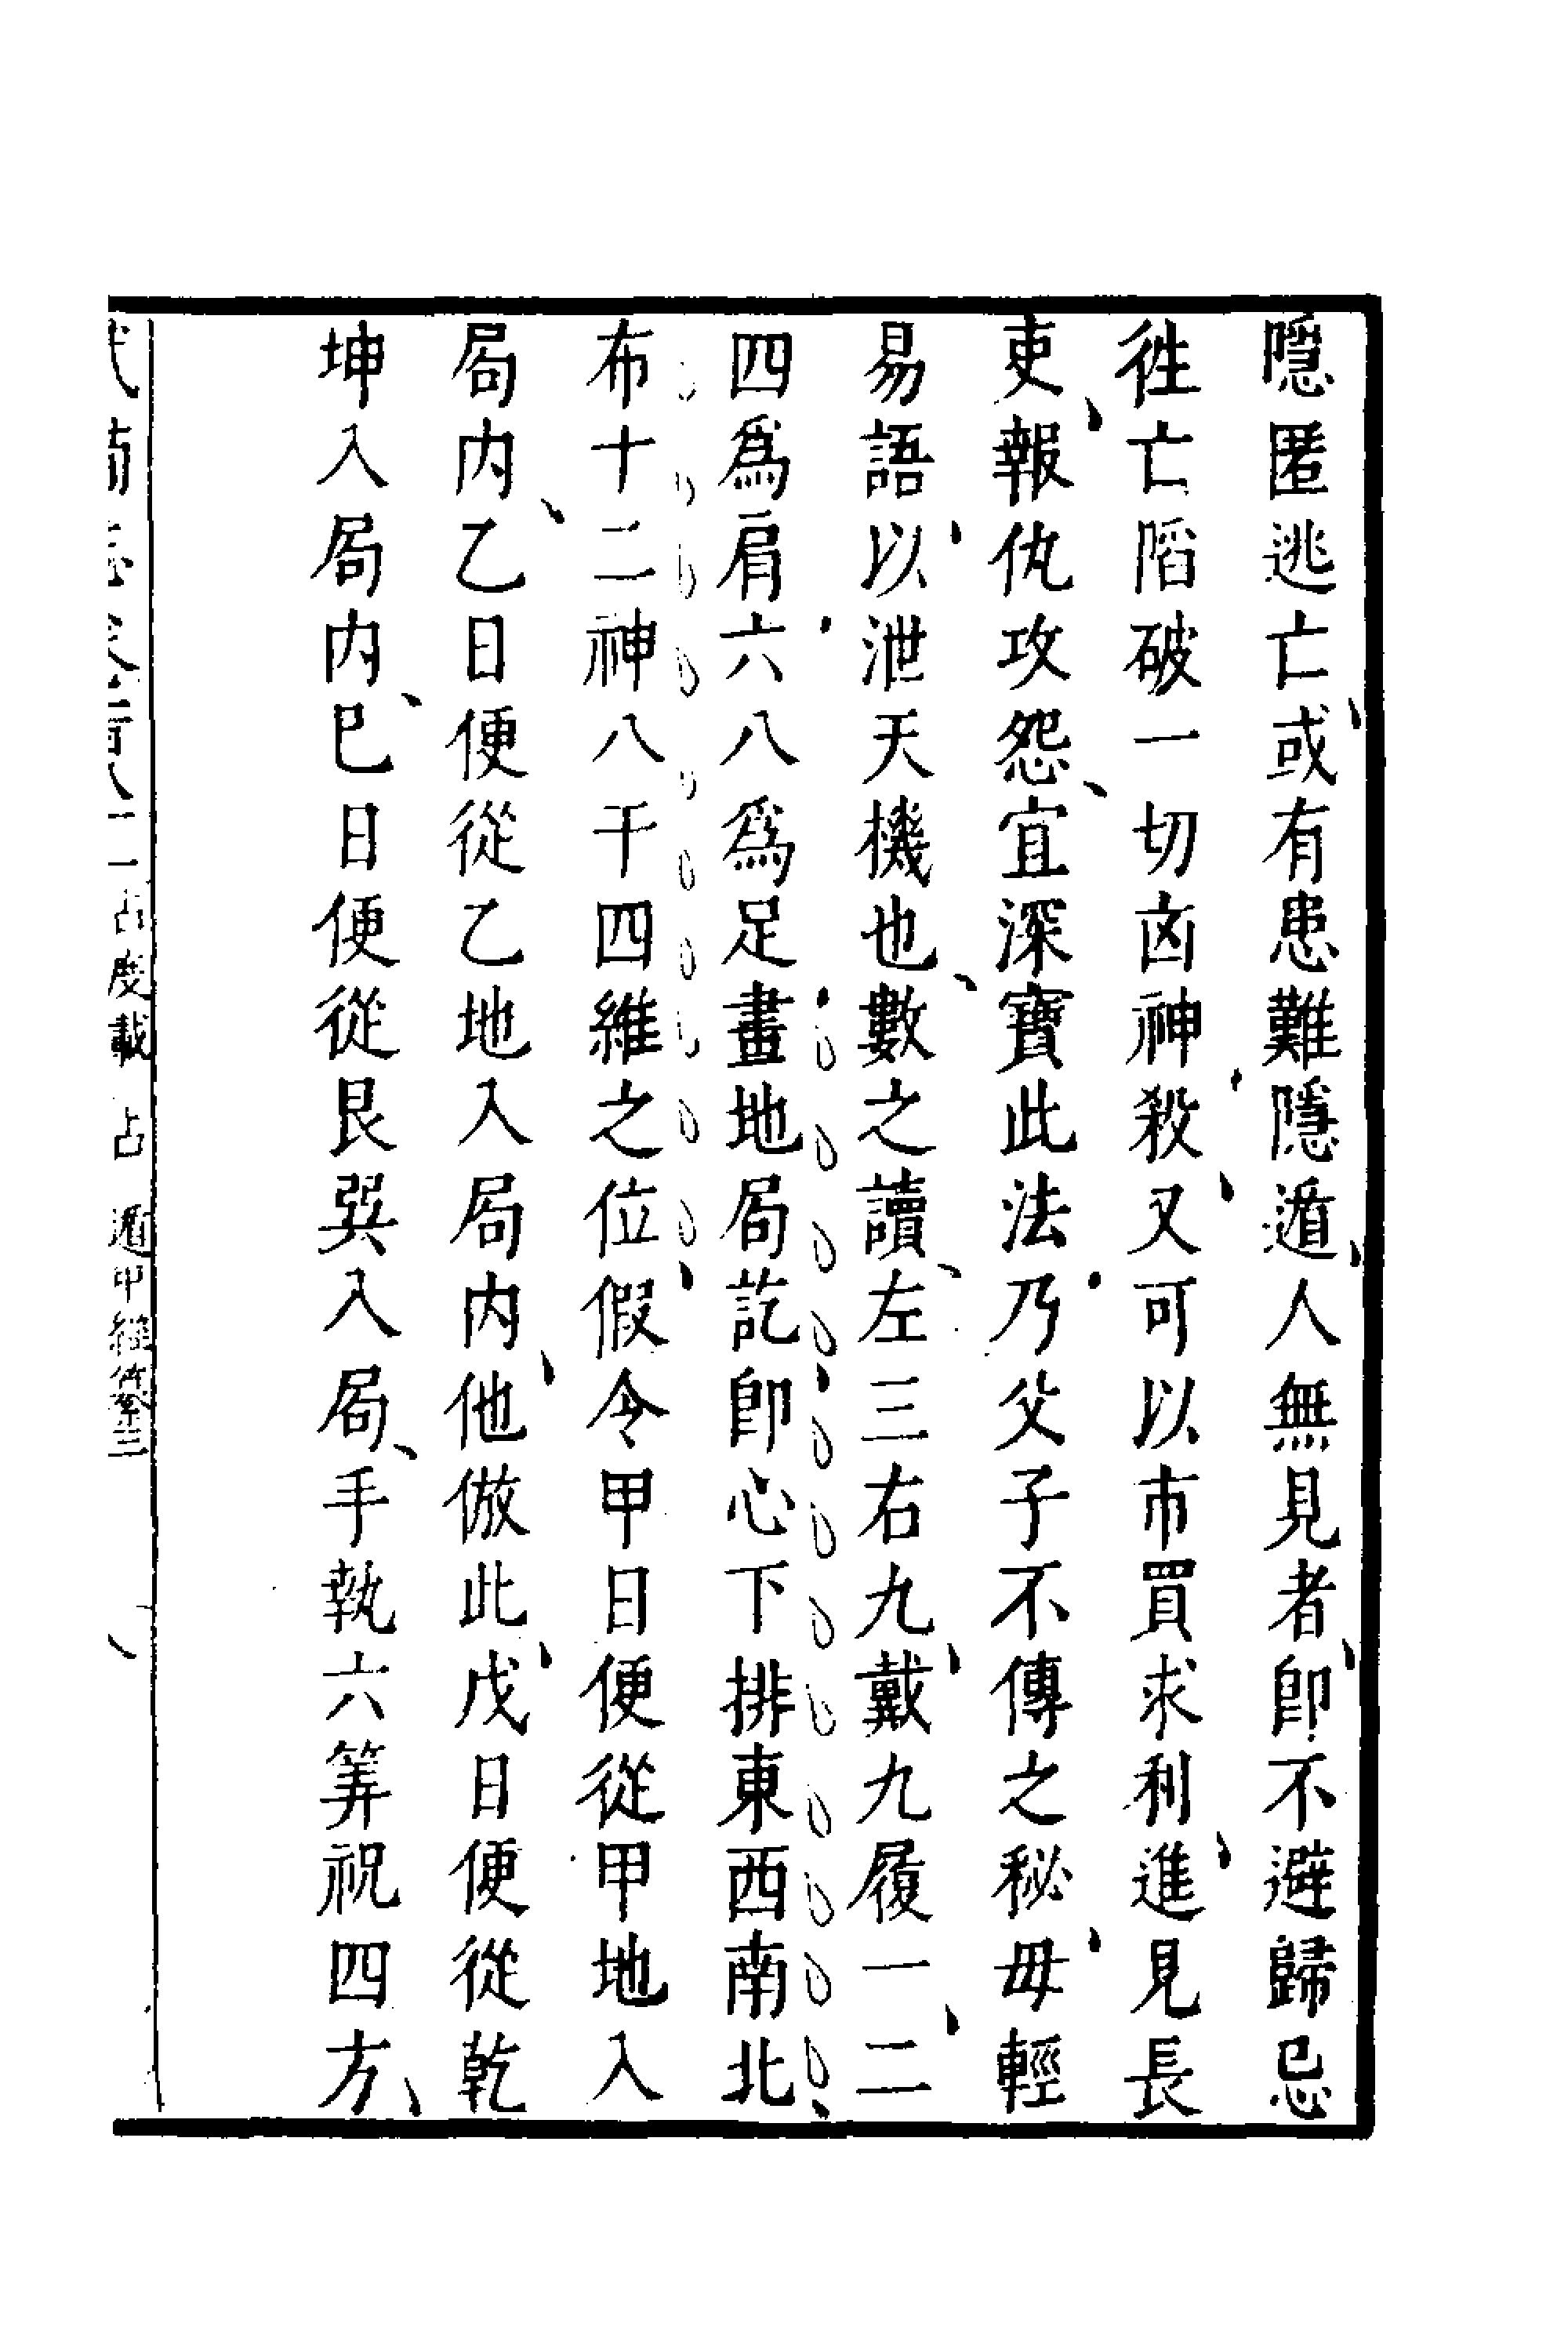 隱匿逃亡或有患難隱遁人無見者卽不避歸忌
徃亡䧟破一切㐫神殺又可以市買求利進見長
吏報仇攻怨宜深寶此法乃父子不傳之秘毋輕
易語以泄天機也數之讀左三右九戴九履一二
四爲肩六八爲足畫地局訖卽心下排東西南北
布十二神八干四維之位假令甲日便從甲地入
局内乙日便從乙地入局内他倣此戊日便從乾
坤入局内巳日便從艮巽入局手執六筭祝四方
占度載 占 遁甲